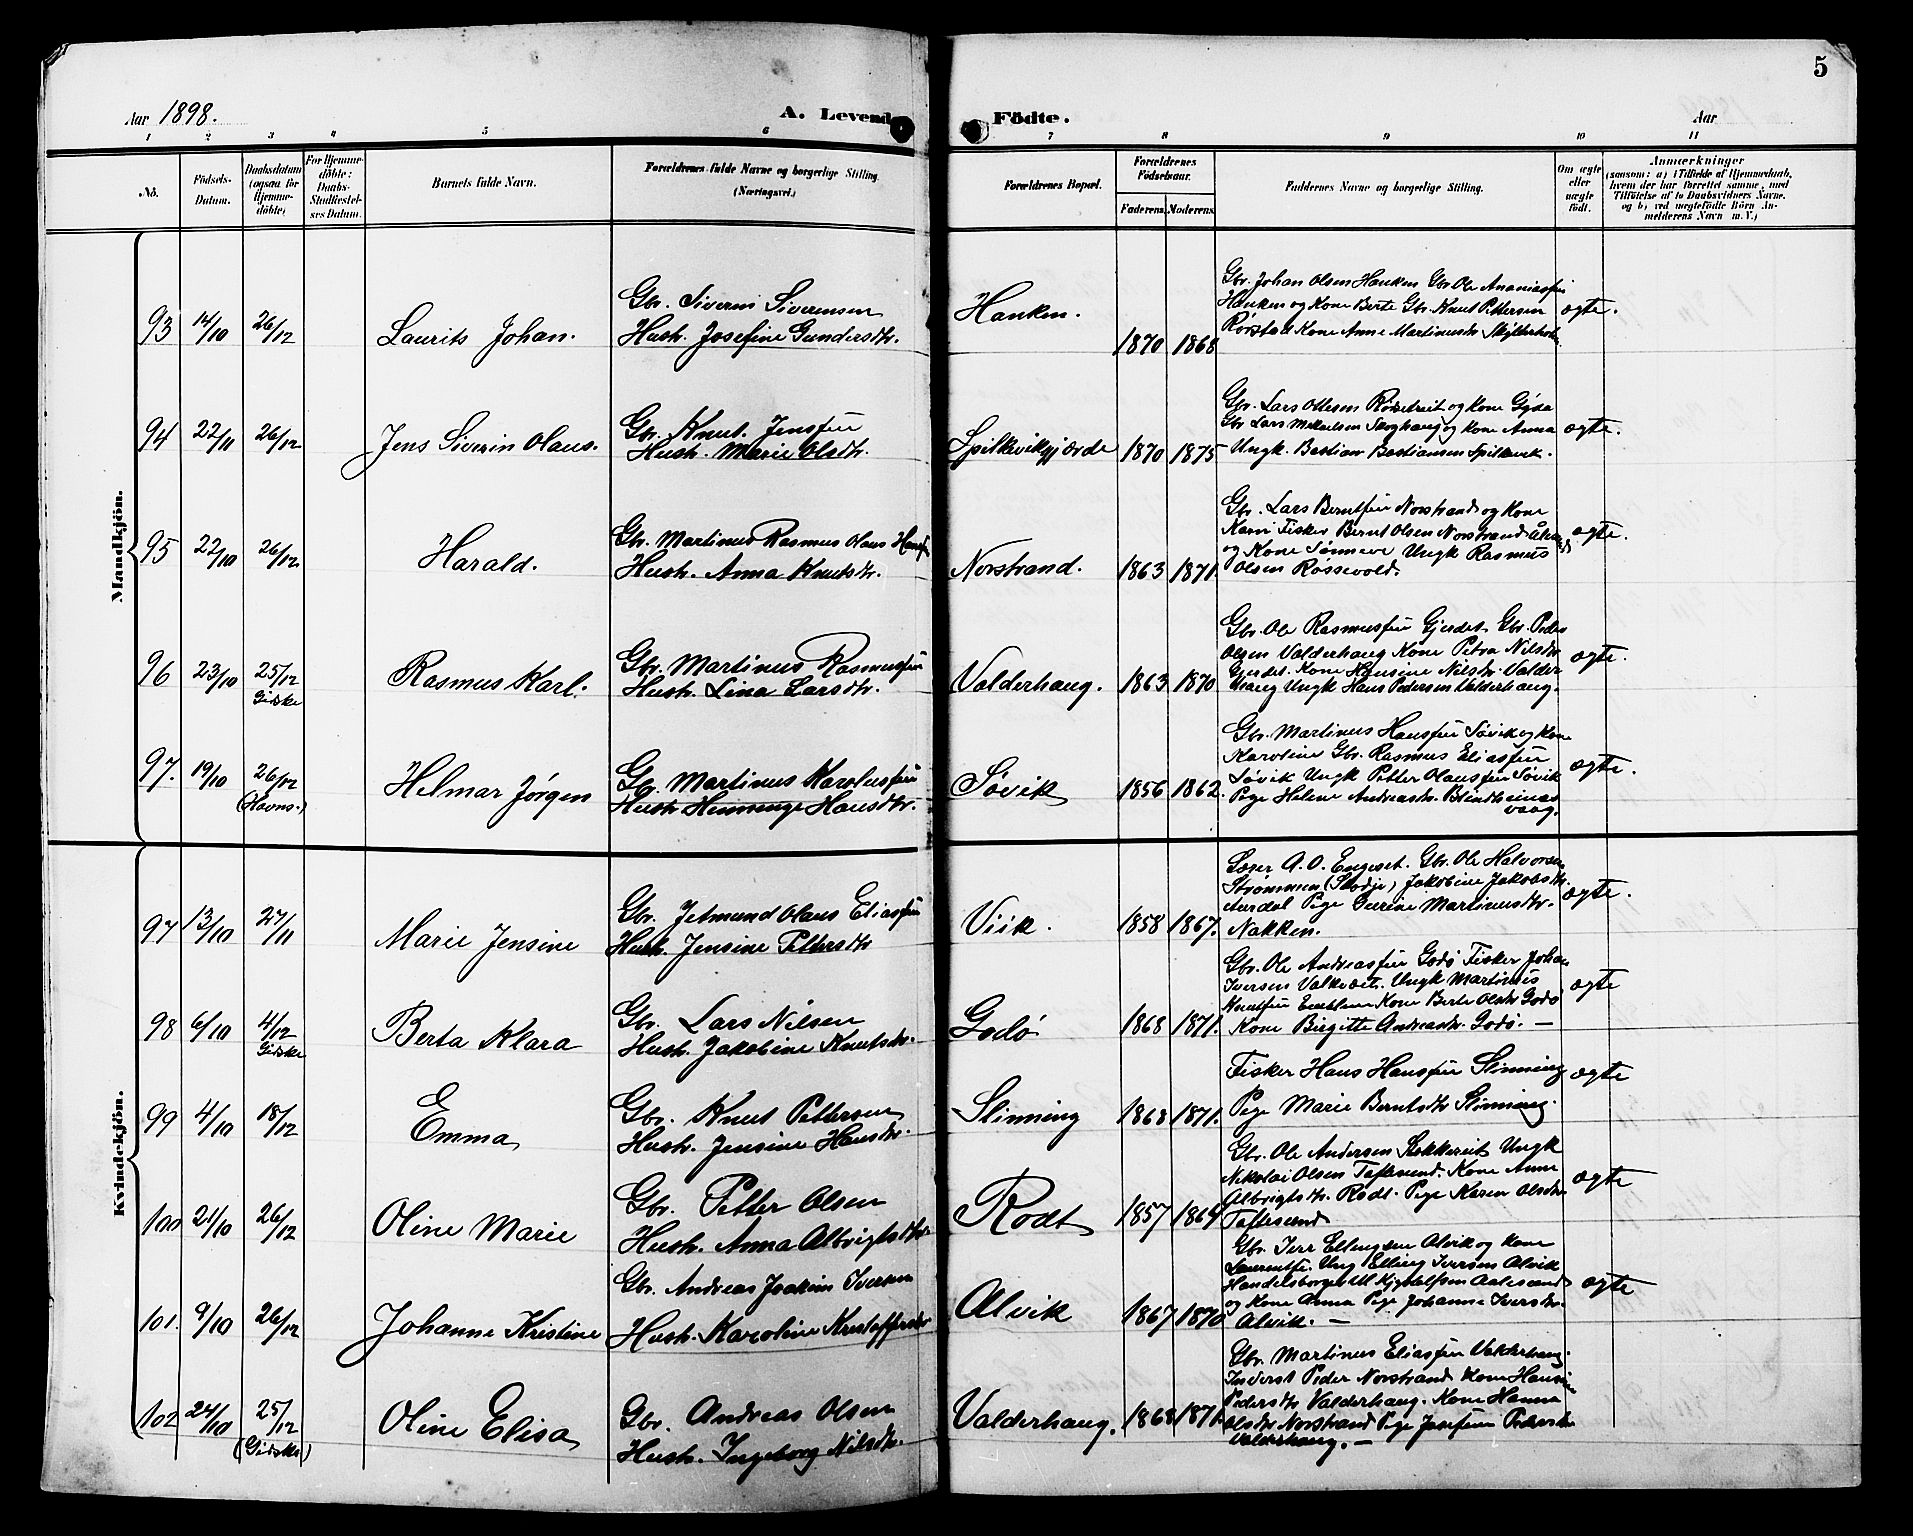 5
Aar 1898.
A. Levende Födte.
Aar
1 2 3 4 5 6 7 8 9 10 11
No.
Födsels-
Datum.
Daabsdatum
(ogsaa for
Hjemme-
döbte)
For Hjemme-
döbte:
Daabs-
Stadfæstel-
ses Datum.
Barnets fulde Navn.
Forældrenes fulde Navne og borgerlige Stilling.
(Næringsvei.)
Forældrenes Bopæl.
Forældrenes
Födselsaar.
Faderens. Moderens.
Faddernes Navne og borgerlige Stilling.
Om ægte
eller
uægte
født.
Anmærkninger
(saasom: a) i Tilfælde af Hjemmedaab,
hvem der har forrettet samme, med
Tilføielse af to Daabsvidners Navne,
og b) ved uægtefødte Börn An-
melderens Navn m.V.)
Mandkjön.
93 14/10 26/12 Laurits Johan.
Gbr. Siverin Siverinsen
Hustr. Josefine Gundersdtr.
Hanken. 1870 1868
Gbr. Johan Olsen Hanken Gbr. Ole Ananiasen
Hanken og Kone Berte Gbr. Knut Pettersen
Rørstad Kone Anne Martinusdtr
ægte.
94 22/11 26/12 Jens Siverin Olaus.
Gbr. Knut. Jensen
Hustr. Marie Olsdtr.
Spilkevikgjærde 1870 1875
Gbr. Lars Ottesen og Kone Gyda
Gbr. Lars Mikaelsen Skoghaug og Kone Anna
Ungk. Bastian Bastiansen Spilkevik.
ægte.
95 22/10 26/12 Harald.
Gbr. Martinus Rasmus Olaus
Hustr. Anna Knutsdtr.
Norstrand. 1863 1871.
Gbr. Lars Berntsen Norstrand og Kone
Karn Fisker Bernt Olsen Norstrand
og Kone Sønneve Ungk Rasmus
Olsen Røssevold.
ægte.
96 23/10 25/12 Giske Rasmus Karl.
Gbr. Martinus Rasmussen
Hustr. Lina Larsdtr.
Valderhaug. 1863 1870
Gbr. Ole Rasmussen Gjerdet Gbr. Peder
Olsen Valderhaug Kone Petra Nilsdtr
Gjerdet. Kone Hansine Nilsdtr. Valder
haug Ungk Hans Pedersen Valderhaug.
ægte.
97. 19/10 26/12 (Havns.) Helmar Jørgen
Gbr. Martinus Karolussen
Hustr. Hansdtr.
Søvik 1856 1862.
Gbr. Martinus Hansen Søvik og Kone
Karoline Gbr. Rasmus Eliassen
Søvik Ungk Petter Olaussen Søvik
Pige Helene Andreasdtr. Blindheims
vaag.
ægte.
Kvindekjön.
97 13/10 27/11 Marie Jensine
Gbr. Jetmund Olaus Eliassen
Hustr. Jensine Pettersdtr
Viik. 1858 1867.
Lærer A. O. Engeset. Gbr. Ole Halvorsen
Strømmen (Skodje) Jakobine Jakobsdtr.
Aurdal Pige Gurine Martinusdtr.
Nakken.
ægte.
98 6/10 4/12 Giske Berta Klara
Gbr. Lars Nilsen
Hustr. Jakobine Knutsdtr.
Godø 1868 1871.
Gbr. Ole Andreassen Godø Fisker Johan
Iversen Valkvæt. Ungk Martinus
Knutsen Emblem Kone Berte Olsdtr Godø
Kone Birgitte Andreasdtr. Godø. —
ægte
99 4/10 18/12 Emma
Gbr. Knut Pettersen
Hustr. Jensine Hansdtr.
Slinning 1868 1871.
Fisker Hans Hansen Slinning
Pige Marie Berntsdtr Slinning.
ægte
100 21/10 26/12 Oline Marie
Gbr. Petter Olsen
Hustr. Anna Albrigtsdtr.
Rødt 1857 1864
Gbr. Ole Andersen Ungk
Nikolai Olsen Taftesund. Kone Anne
Albrigtsdtr. Rødt. Pige Karen Olsdtr
Taftesund
ægte
101. 9/10 26/12 Johanne Kristine
Gbr. Andreas Joakim Iversen
Hustr. Karoline Kristoffersdtr
Alvik 1867 1870
Gbr. Iver Ellingsen Alvik og Kone
Laurentse. Ung Elling Iversen Alvik
Handelsborger Aalesund
og Kone Anna Pige Johanne Iversdtr.
Alvik. —
ægte
102 24/10 25/12 (Giske) Oline Elisa
Gbr. Andreas Olsen
Hustr. Ingeborg Nilsdtr.
Valderhaug. 1868 1871.
Gbr. Martinus Eliassen Valderhaug.
Inderst Peder Norstrand Kone Hansine
Pedersdtr Valderhaug. Kone Hanna
Olsdtr Norstrand Pige Josefine Pedersdtr
Valderhaug. —